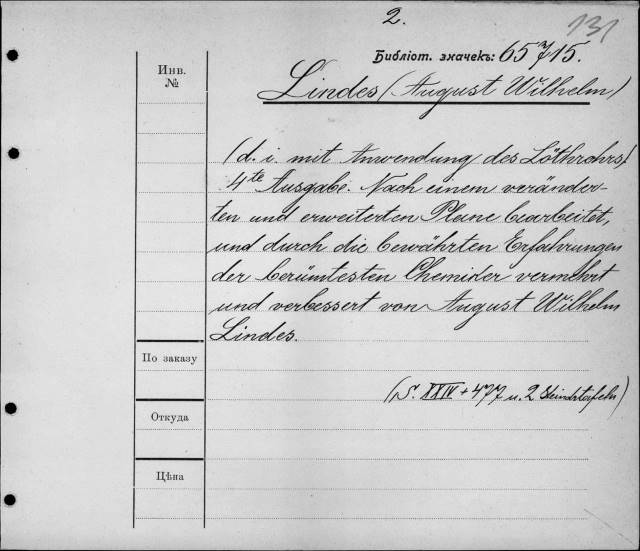 2.
131
Библіот. значекъ: 65715.
Инв.
№
Lindes (August Wilhelm)
(d. i. mit Anwendung des Löthrohrs)
4te Ausgabe. Nach einem veränder-
ten und erweiterten Plane bearbeitet,
und durch die bewährten Erfahrungen
der berümtesten Chemiker vermehrt
und verbessert von August Wilhelm
Lindes.
По заказу
(S. XXIV + 477 u. 2 Steindrtafeln)
Откуда
Цѣна